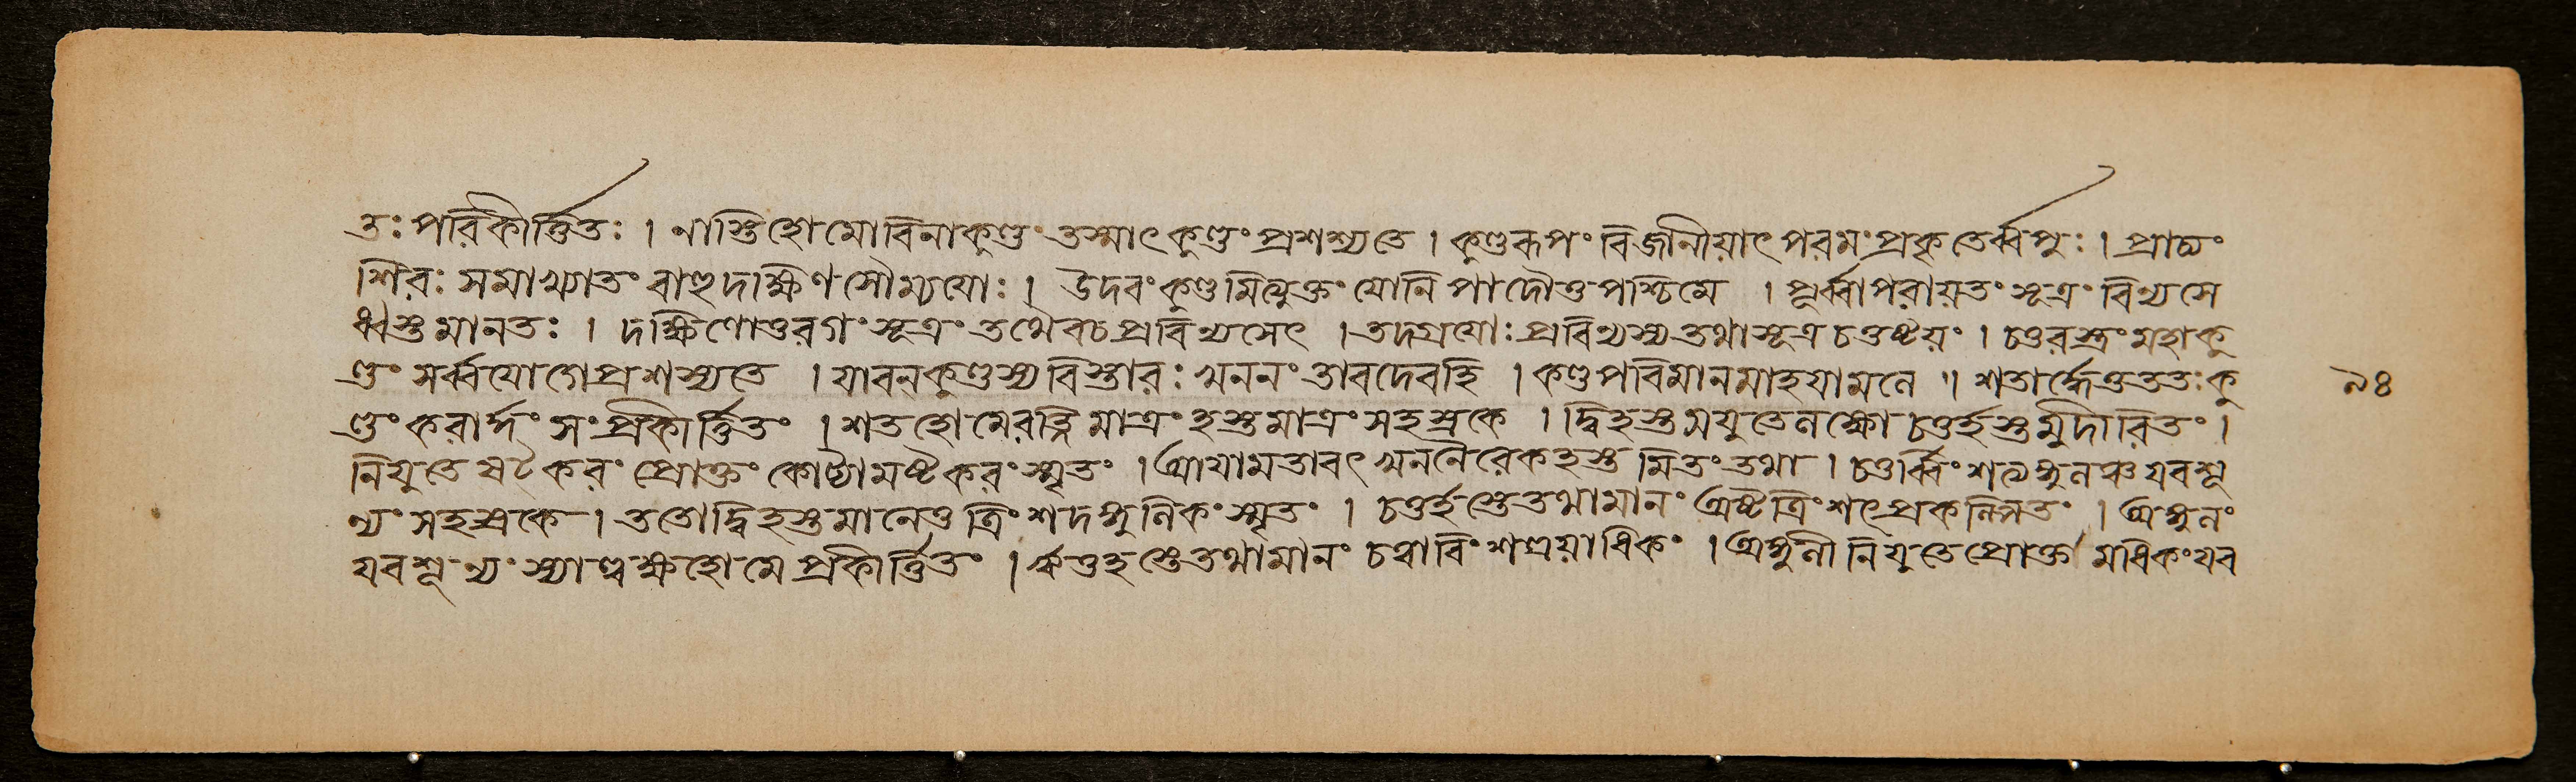 তঃ পরিকীর্ত্তিতঃ । নাস্তিহোমোবিনাকুণ্ডং তস্মাৎকুণ্ডং প্রশস্যতে । কুণ্ডরূপং বিজানীয়াৎ পরমং প্রকৃতের্ব্বপুঃ । প্রাচ্যং
শিরঃ সমাখ্যাতং বাহুদক্ষিণসৌম্যযোঃ । উদরং কুণ্ডমিত্যুক্তং যোনি পাদৌতু পশ্চিমে । পূর্ব্বাপরায়তং সূত্রং বিন্যসে
ধ্বস্তুমানতঃ । দক্ষিণোত্তরগং সূত্রং তথৈবচ প্রবিন্যসেৎ । তদগ্রযোঃ প্রবিন্যস্য তথাসূত্র চতুষ্টয়ং । চতুরস্রং মহাকু
ণ্ডং সর্ব্বযোগেপ্রশস্যতে । যাবনকুণ্ডস্যবিস্তারঃ খননং তাবদেবহি । কণ্ডপরিমানমাহযামনে ॥ শতার্দ্ধেতুততঃকু
ণ্ডং করার্দ্দং সংপ্রকীর্ত্তিতং । শতহোমেরত্নিমাত্রং হস্তমাত্রং সহস্রকে । দ্বিহস্তমযুতেলক্ষে চতুর্হস্তমুদীরিতং ।
নিযুতে ষট্করং প্রোক্তং কোট্যামষ্টকরং স্মৃতং । আযামতাবৎ খননৈরেকহস্ত মিতং তথা । চতুর্ব্বিংশত্যঙ্গুলঞ্চ যবশূ
ন্যং সহস্রকে । ততোদ্বিহস্তমানেতু ত্রিংশদঙ্গুলিকং স্মৃতং । চতুর্হস্তেতথামানং অষ্টত্রিংশৎপ্রকল্পিতং । অঙ্গুলং
যবশূন্যং স্যাল্লক্ষহোমে প্রকীর্ত্তিতং । র্ষ্কণ্ডহস্তেতথামানং চত্বারিংশত্রয়াধিকং । অঙ্গুলী নিযুতেপ্রোক্ত মধিকংযব
৯৪